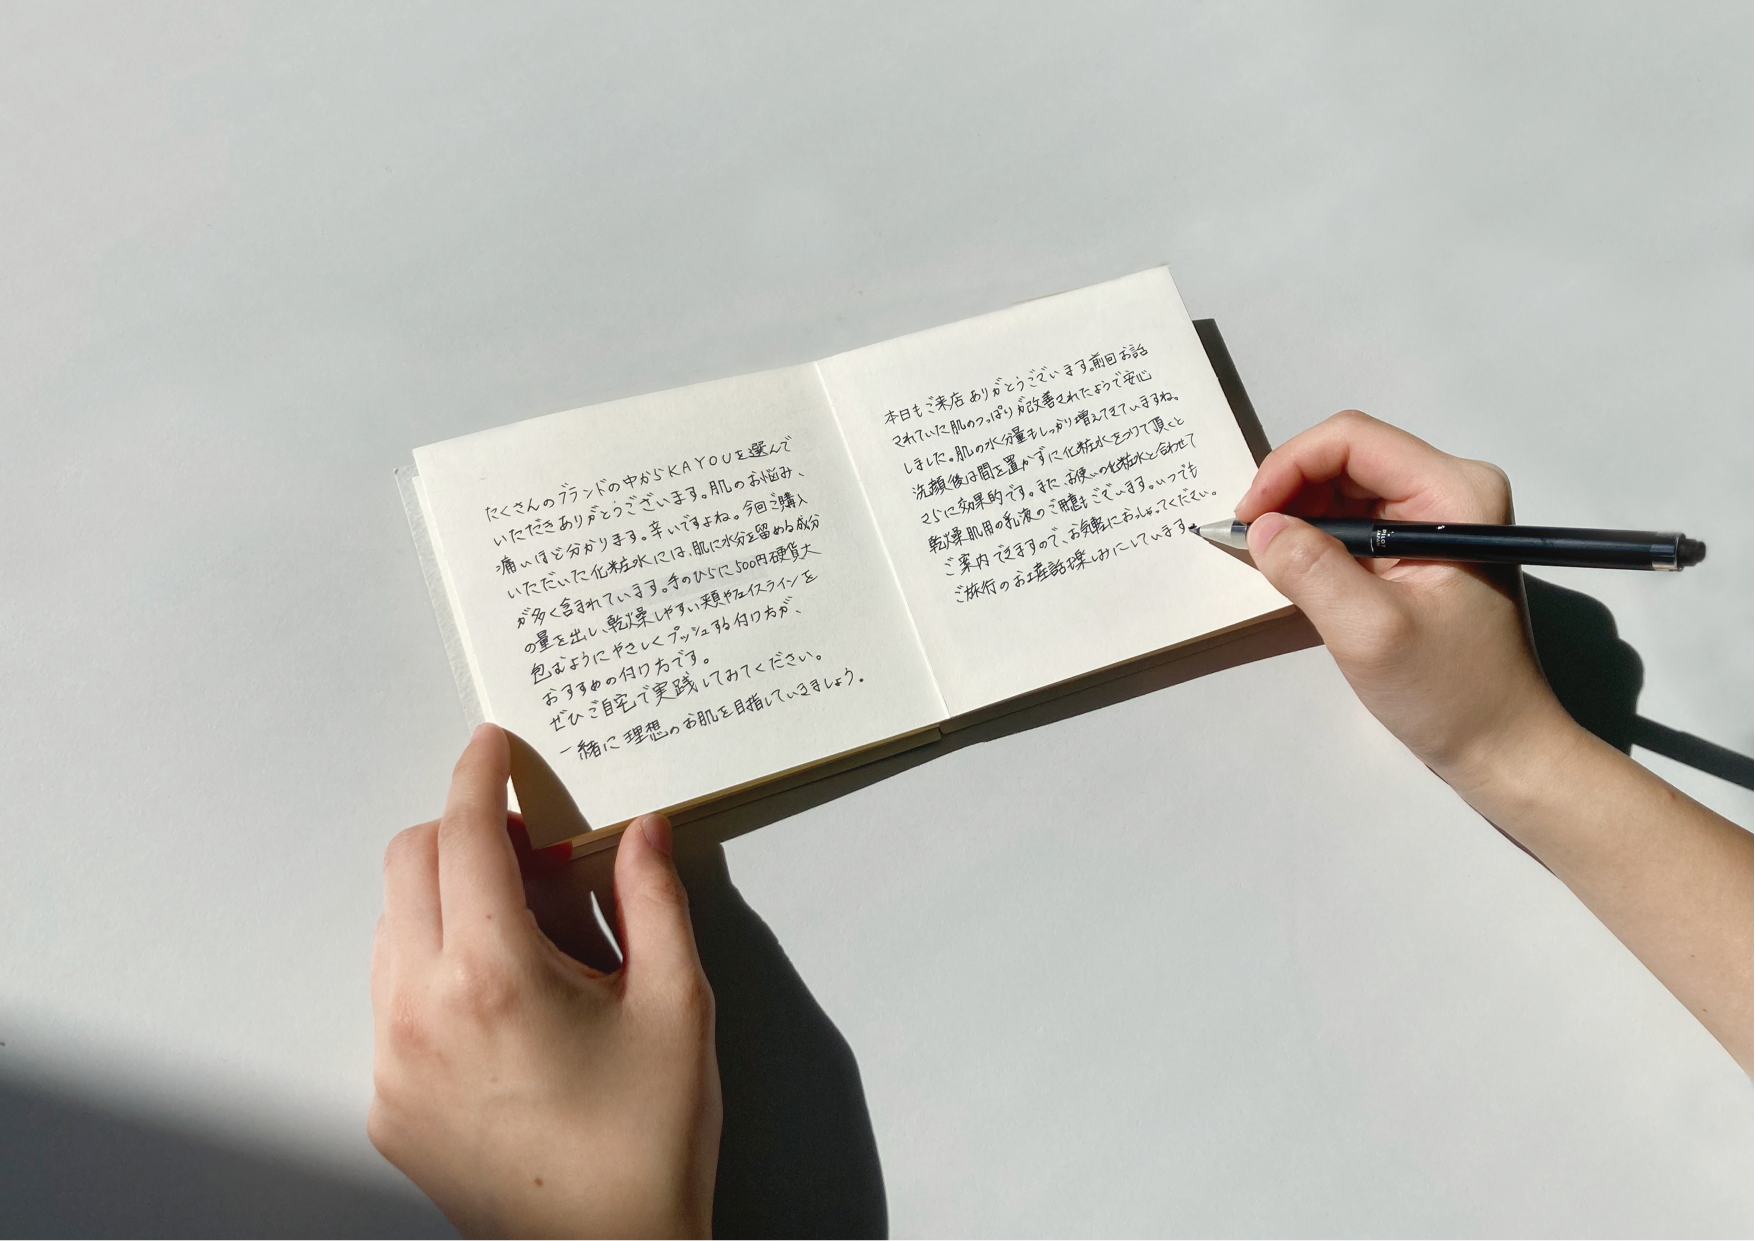 たくさんのブランドの中からKAYOUを選んで
いただきありがとうございます。肌のお悩み、
痛いほど分かります。辛いですよね。今回ご購入
いただいた化粧水には、肌に水分を留める成分
が多く含まれています。手のひらに500円硬貨大
の量を出し、乾燥しやすい頬やフェイスラインを
包むようにやさしくプッシュする付け方が、
おすすめの付け方です。
ぜひご自宅で実践してみてください。
一緒に理想のお肌を目指していきましょう。
本日もご来店ありがとうございます。前回お話
されていた肌のつっぱりが改善されたようで安心
しました。肌の水分量もしっかり増えてきていますね。
洗顔後は間を置かずに化粧水をつけて頂くと
さらに効果的です。また、お使いの化粧水と合わせて
乾燥肌用の乳液のご用意もございます。いつでも
ご案内できますので、お気軽におっしゃってください。
ご旅行のお土産話楽しみにしています
PILOT